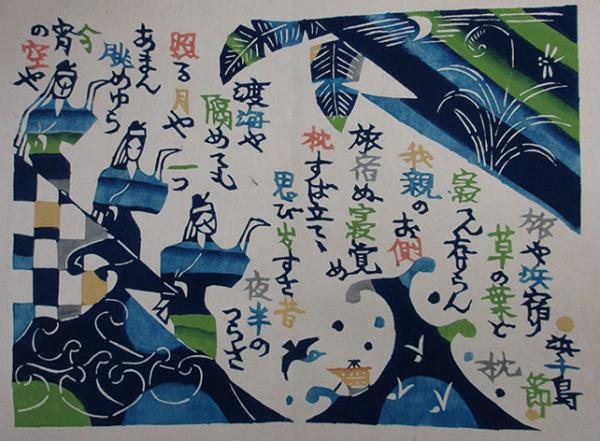 浜千鳥節
旅や浜宿り
草の葉ど枕
寝てん忘らん
我親のお側
旅宿ぬ寝覚め
枕すば立てゝ
思び出すさ昔
夜半のつらさ
渡海や
隔めても
照る月や一つ
あまん
眺めゆら
今宵
の空や